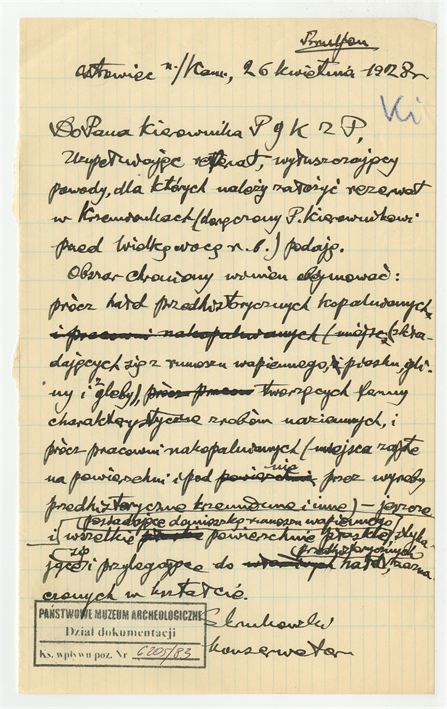 Bruljon
Ostrowiec n./Kam., 26 kwietnia 1928 r.
Ki
Do Pana Kierownika P G K Z P,
Uzupełniając referat, wyłuszczający
powody, dla których należy założyć rezerwat
w Krzemionkach (doręczony P. Kierownikowi
przed Wielkąnocą r. b.) podaję.
Obszar chroniony winien obejmować:
prócz hałd przedhistorycznych kopalnianych
i pracowni nakopalnianych (miejsc, skła-
dających się z rumoszu wapiennego, i piasku, gli-
ny i z gleby), prócz pracow tworzących
charakterystyczne naziemnych, i
prócz pracowni nakopalnianych (miejsca zajęte
na powierzchni i pod nią przez wyroby
przedhistoryczne krzemienne i inne) – jeszcze
posiadające domieszkę rumoszu wapiennego
i wszelkie płaskie powierzchnie płaskie, styka-
jące się i przylegające do właściwych hałd przedhistorycznych, zazna-
czonych w kształcie.
S Krukowski
konserwator
PAŃSTWOWE MUZEUM ARCHEOLOGICZNE
Dział dokumentacji
Ks. wpływu poz. Nr 6205/83